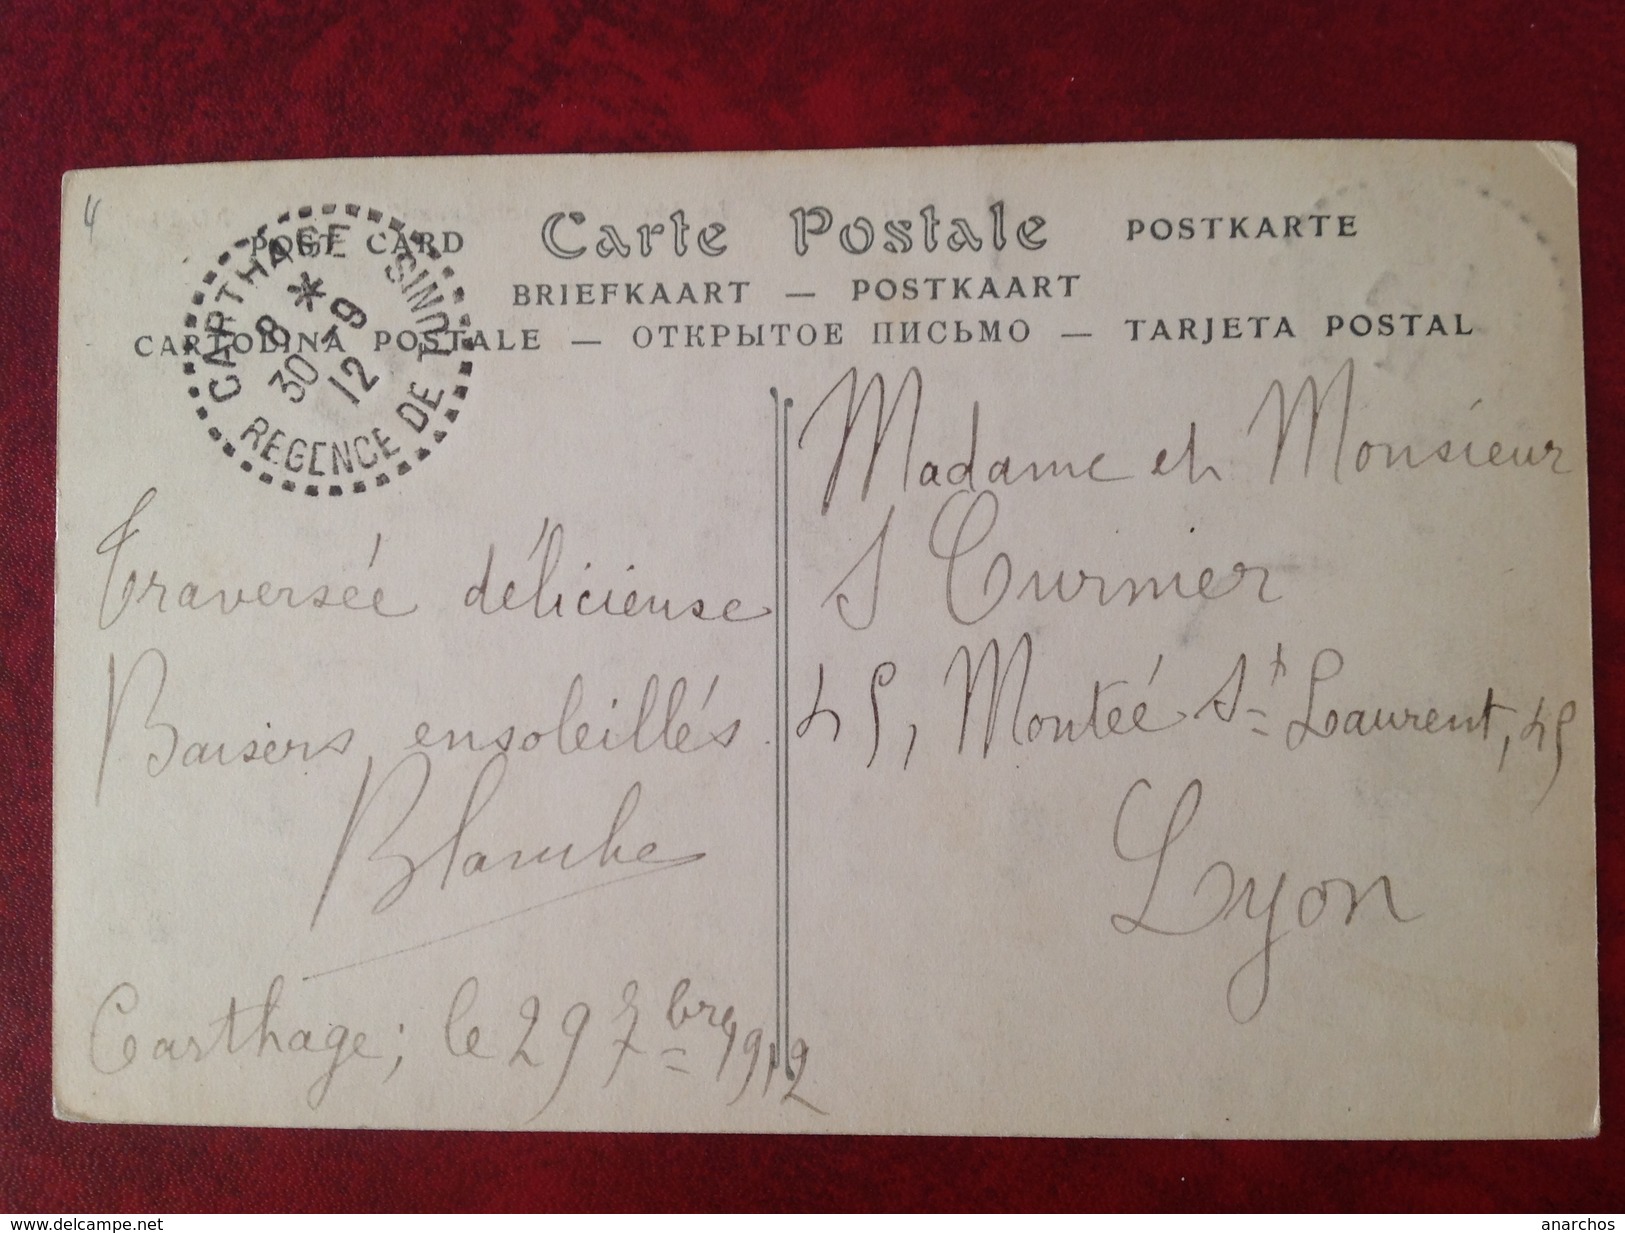 4
POST CARD Carte Postale POSTKARTE
BRIEFKAART — POSTKAART
CARTOLINA POSTALE — ОТКРЫТОЕ ПИСЬМО — TARJETA POSTAL
CARTHAGE
REGENCE DE TUNIS
*
8
30-9
12
Traversée délicieuse
Baisers ensoleillés.
Blanche
Carthage; le 29 7bre 1912
Madame et Monsieur
J Curnier
45, Montée St Laurent, 45
Lyon
www.delcampe.net
anarchos